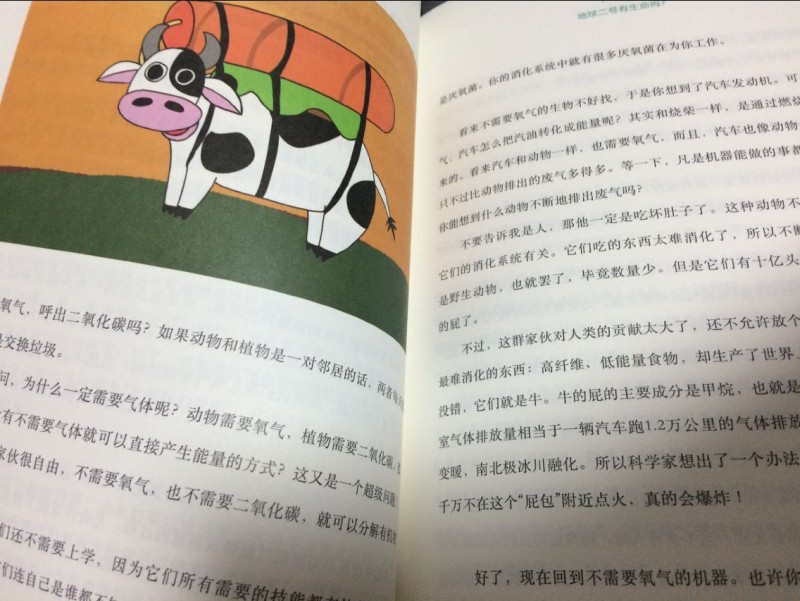 氧气，呼出二氧化碳吗？如果动物和植物是一对邻居的话，两者
是交换垃圾。
问，为什么一定需要气体呢？动物需要氧气，植物需要二氧化碳，
有不需要气体就可以直接产生能量的方式？这又是一个超级问题
家伙很自由，不需要氧气，也不需要二氧化碳，就可以分解有机
们还不需要上学，因为它们所有需要的技能都
们连自己是谁都不
地球二号有生命吗？
是厌氧菌。你的消化系统中就有很多厌氧菌在为你工作。
看来不需要氧气的生物不好找，于是你想到了汽车发动机。可
气，汽车怎么把汽油转化成能量呢？其实和烧柴一样，是通过燃烧
来的。看来汽车和动物一样，也需要氧气，而且，汽车也像动物
只不过比动物排出的废气多得多。等一下，凡是机器能做的事都
你能想到什么动物不断地排出废气吗？
不要告诉我是人，那他一定是吃坏肚子了。这种动物不
它们的消化系统有关。它们吃的东西太难消化了，所以不断
是野生动物，也就罢了，毕竟数量少。但是它们有十亿头
的屁了。
不过，这群家伙对人类的贡献太大了，还不允许放个
最难消化的东西：高纤维、低能量食物，却生产了世界
没错，它们就是牛。牛的屁的主要成分是甲烷，也就是
室气体排放量相当于一辆汽车跑1.2万公里的气体排放
变暖，南北极冰川融化。所以科学家想出了一个办法
千万不在这个“屁包”附近点火，真的会爆炸！
好了，现在回到不需要氧气的机器。也许你